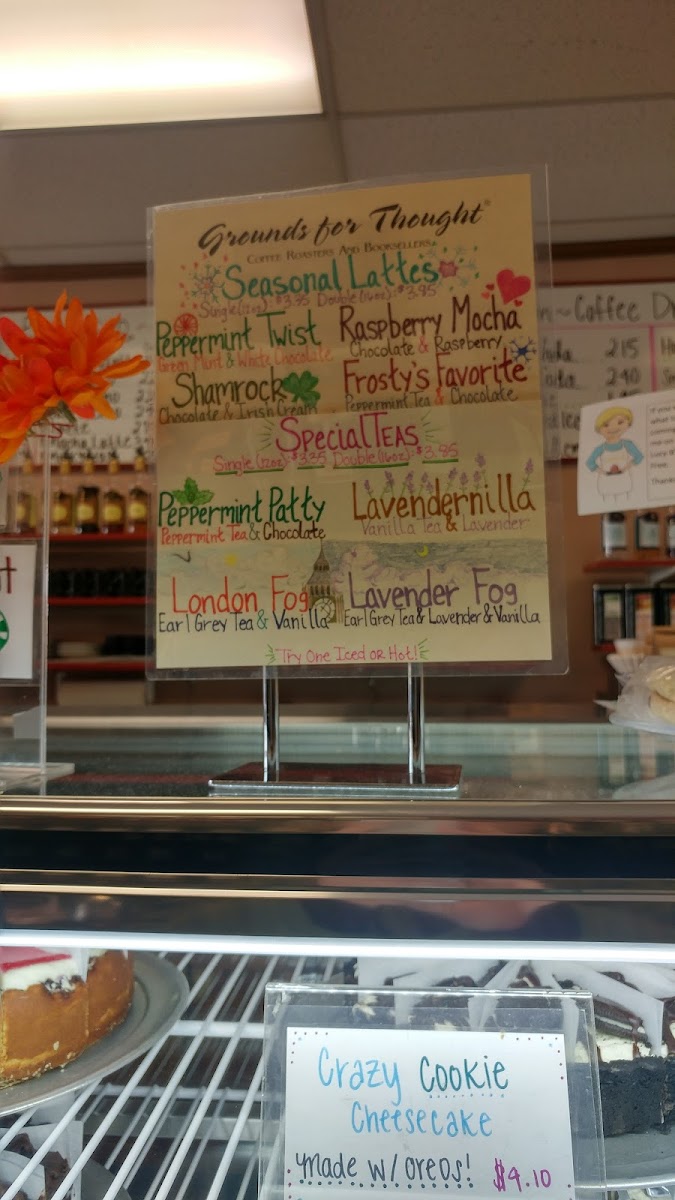 Grounds for Thought
Coffee Roasters And Booksellers
Seasonal Lattes
Single(12oz):$3.35 Double(16oz):$3.95
Peppermint Twist
Green Mint & White Chocolate
Raspberry Mocha
Chocolate & Raspberry
Shamrock
Chocolate & Irish Cream
Frosty's Favorite
Peppermint Tea & Chocolate
SpecialTEAS
Single(12oz):$3.25 Double(16oz):$3.85
Peppermint Patty
Peppermint Tea & Chocolate
Lavendernilla
Vanilla Tea & Lavender
London Fog
Earl Grey Tea & Vanilla
Lavender Fog
Earl Grey Tea & Lavender & Vanilla
"Try One Iced or Hot!
Coffee
215
240
If you
Free.
Crazy Cookie
Cheesecake
made w/ oreos! $4.10